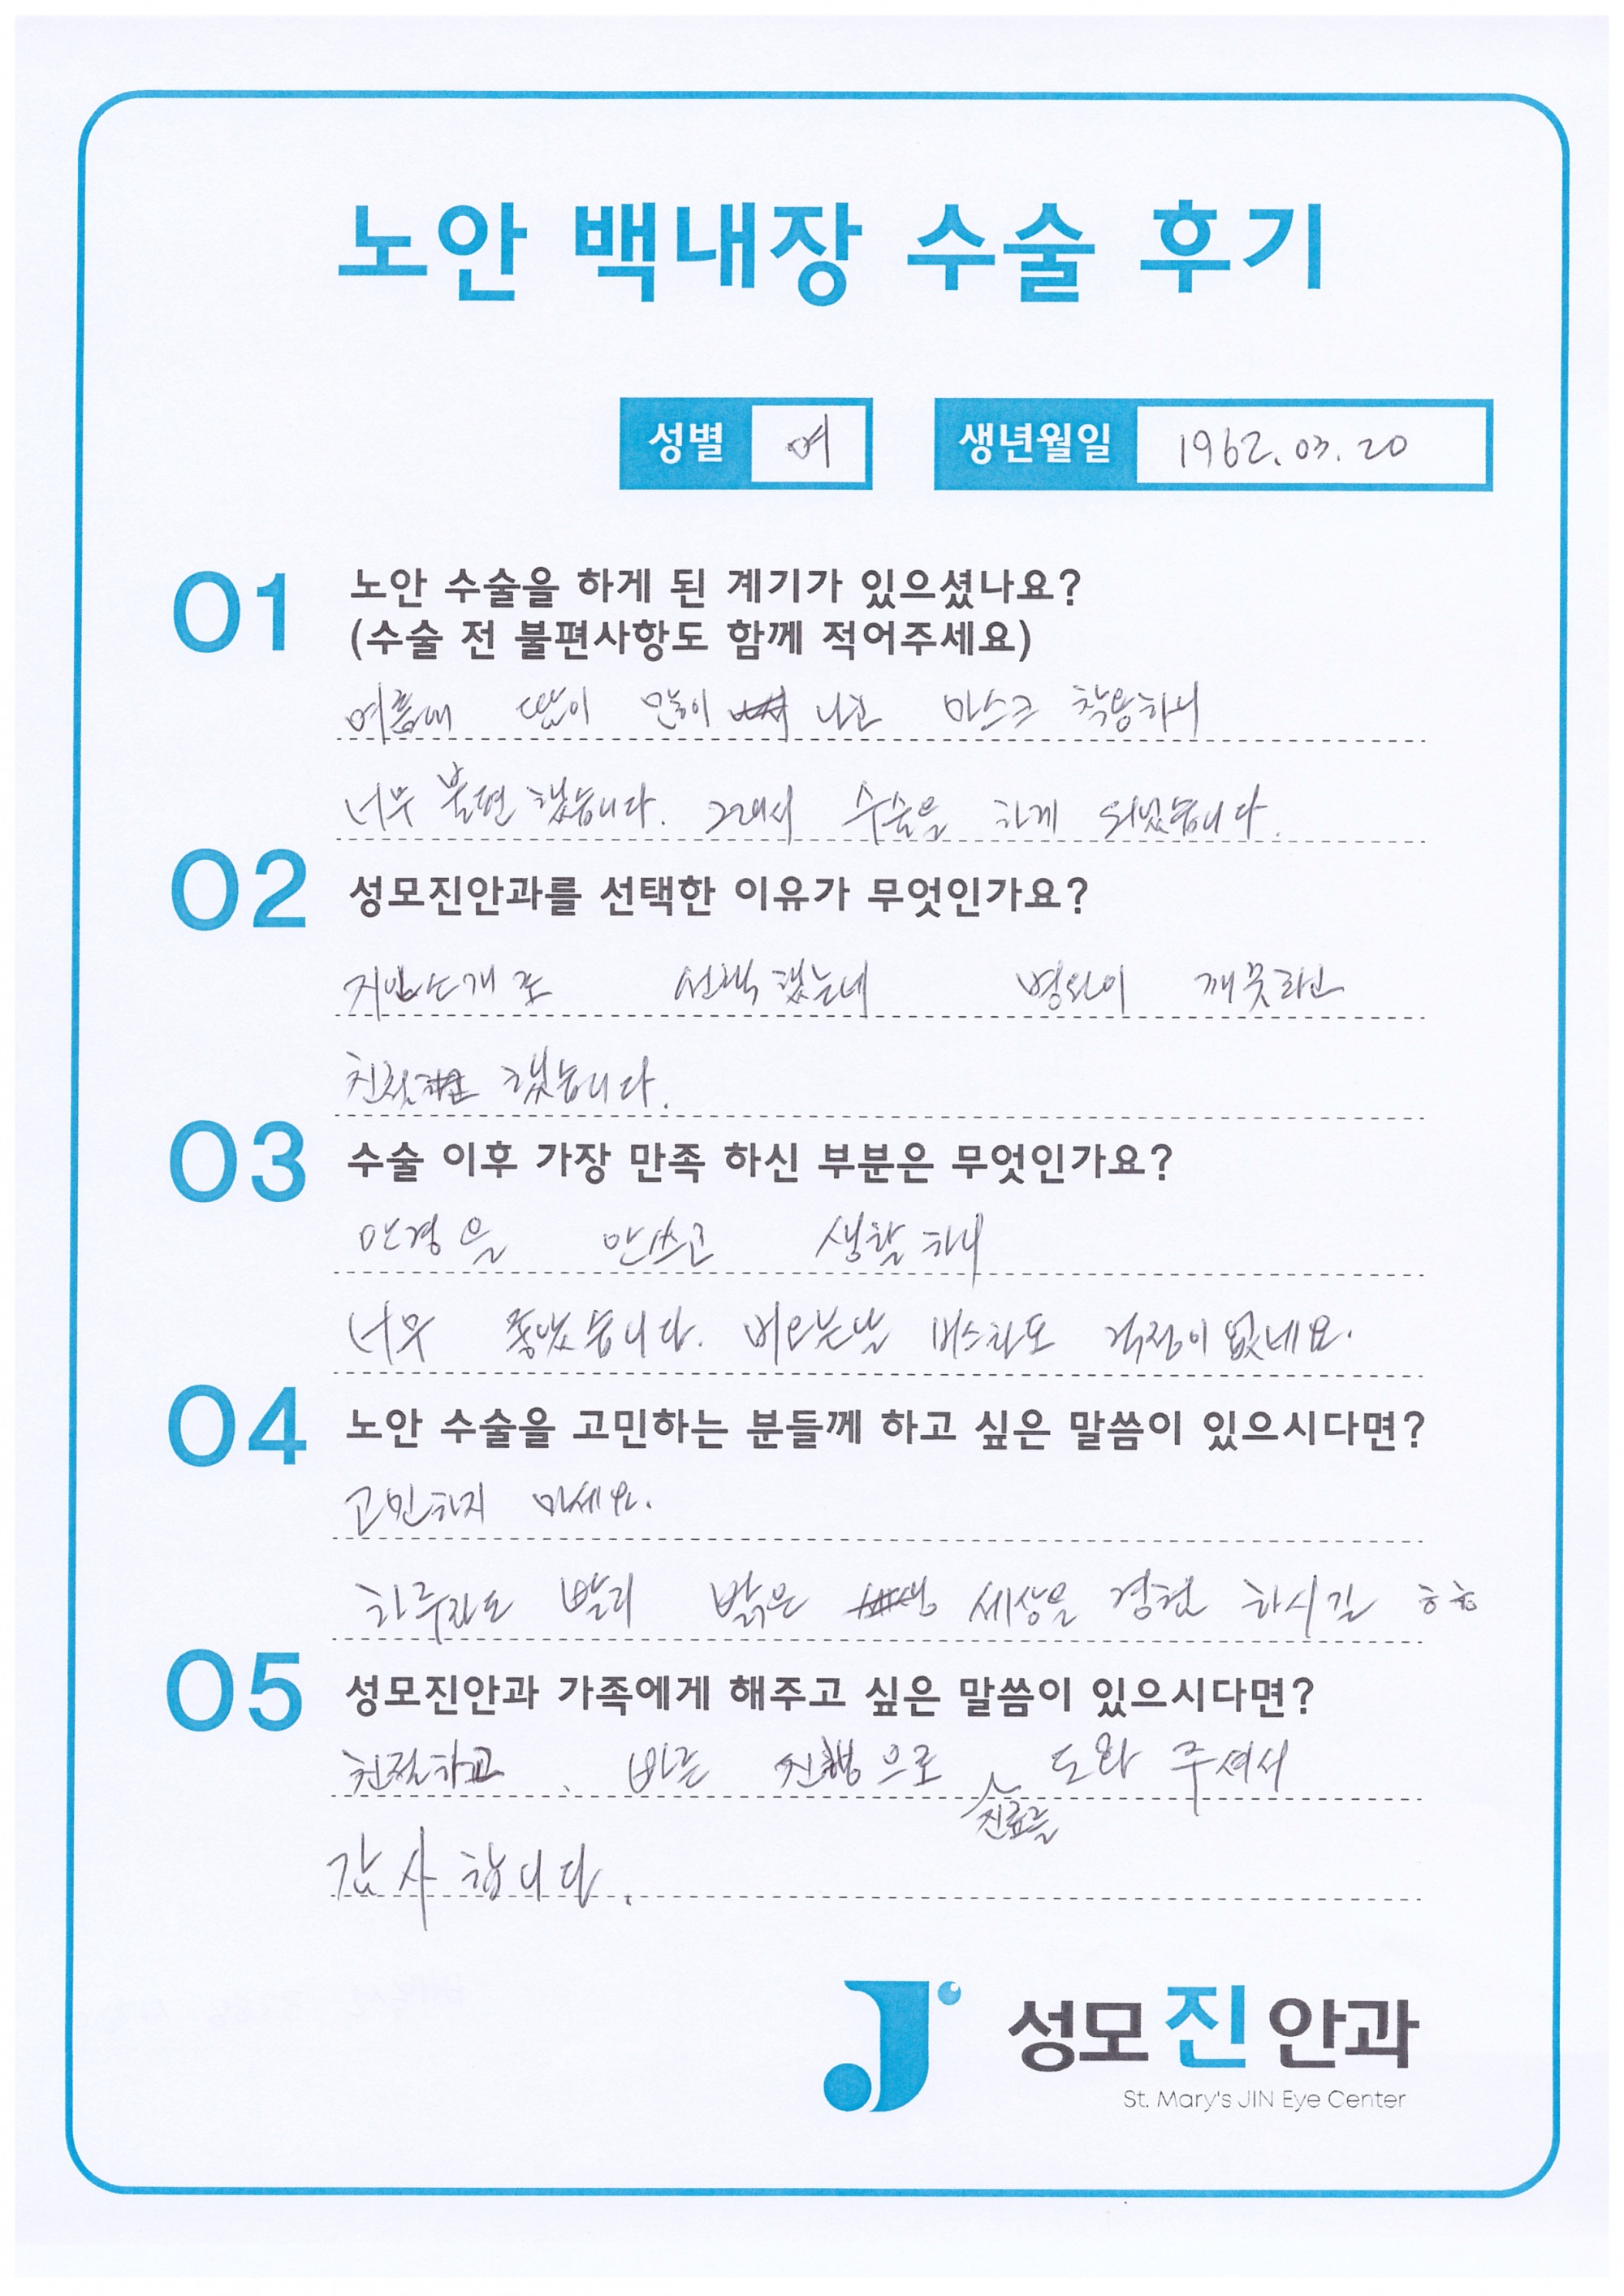 노안 백내장 수술 후기
성별 여 생년월일 1962.03.20
01 노안 수술을 하게 된 계기가 있으셨나요?
(수술 전 불편사항도 함께 적어주세요)
여름에 땀이 많이 나고 마스크 착용하니
너무 불편했습니다. 그래서 수술을 하게 되었습니다.
02 성모진안과를 선택한 이유가 무엇인가요?
지인소개로 선택했는데 병원이 깨끗하고
친절 했습니다.
03 수술 이후 가장 만족 하신 부분은 무엇인가요?
안경을 안쓰고 생활하니
너무 좋았습니다. 비오는날 버스타도 걱정이 없네요.
04 노안 수술을 고민하는 분들께 하고 싶은 말씀이 있으시다면?
고민하지 마세요.
하루라도 빨리 밝은 세상을 경험 하시길 ㅎㅎ
05 성모진안과 가족에게 해주고 싶은 말씀이 있으시다면?
친절하고 바른 으로 진료를 도와 주셔서
감사합니다.
성모진안과
St. Mary's JIN Eye Center